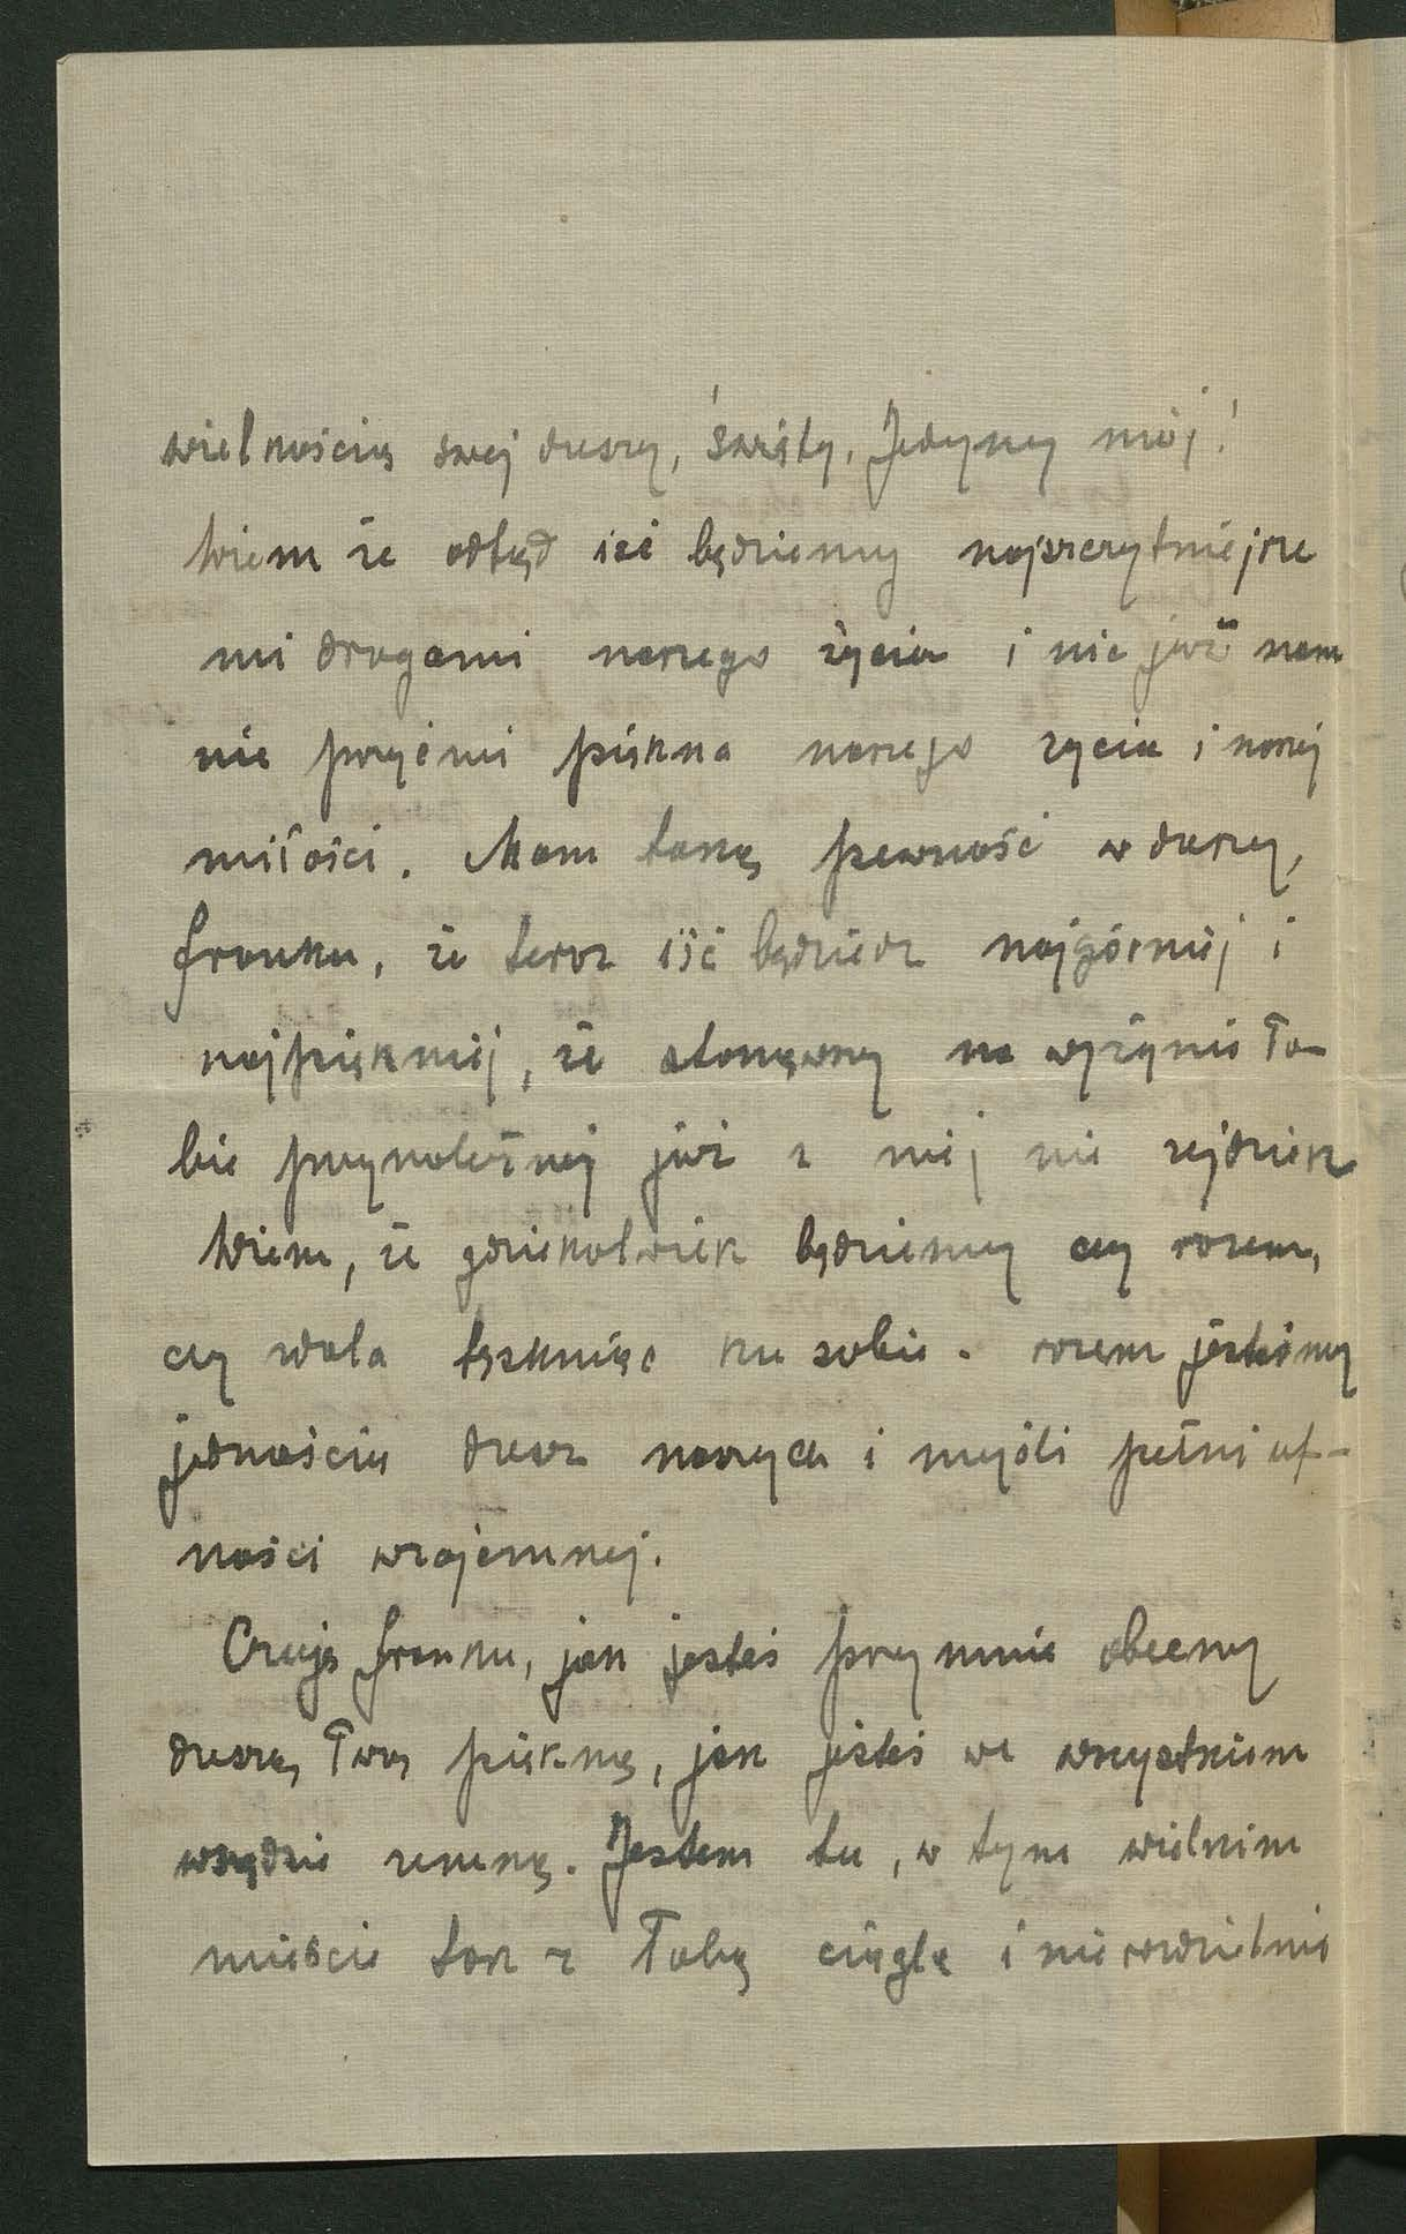 wielkością swej duszy, święty, Jedyny mój!
Wiem że odtąd iść będziemy najszczytniejsze
mi drogami naszego życia i nic już nam
nie przyćmi piękna naszego życia i naszej
miłości. Mam taką pewność w duszy,
Franku, że teraz iść będziesz najgórniej i
najpiękniej, że stanąwszy na wyżynie To-
bie przynależnej już z niej nie zejdziesz
Wiem, że gdziekolwiek będziemy czy razem,
czy zdala tęskniąc ku sobie - razem jesteśmy
jednością dusz naszych i myśli pełni uf-
ności wzajemnej.
Czuję Franku, jak jesteś przy mnie obecny
duszą Twą piękną, jak jesteś we wszystkiem
wszędzie zemną. Jestem tu, w tym wielkim
mieście tak z Tobą ciągle i nierozdzielnie